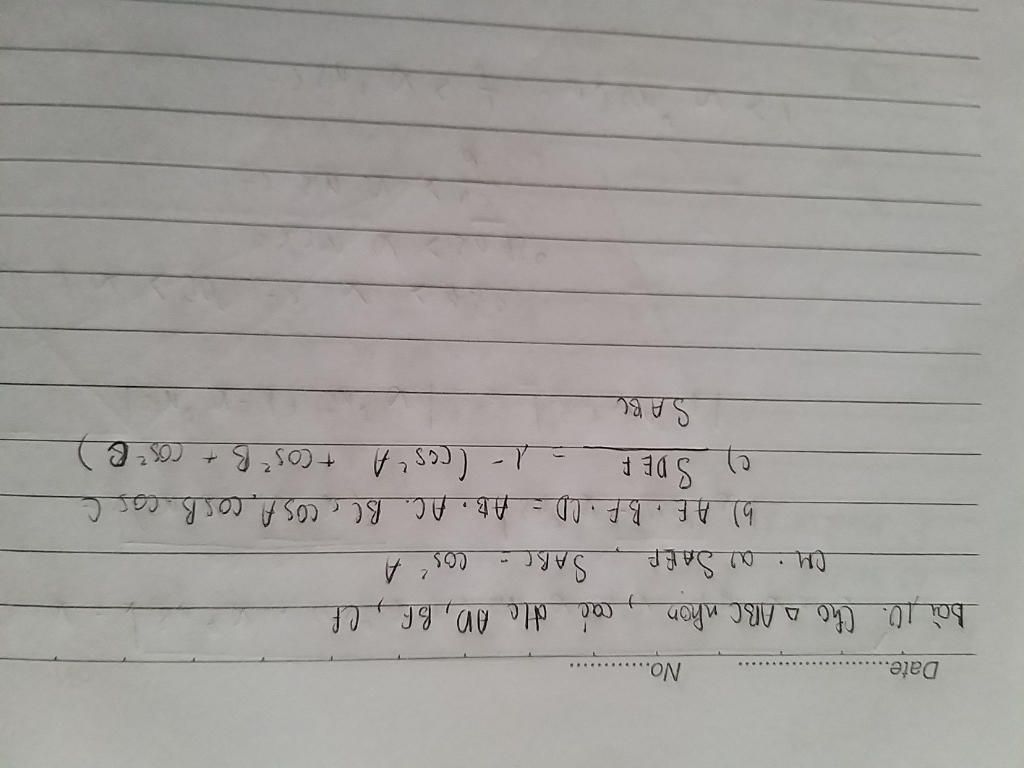 Date........................ No.............
Bài 10. Cho △ ABC nhọn, các đ/c AD, BE, CF
CM. a) SAEF, SABC = cos² A
b) AE. BF. CD = AB. AC. BC. cosA. cosB. cos C
c) SDEF = 1 - (cos² A + cos² B + cos² C)
SABC